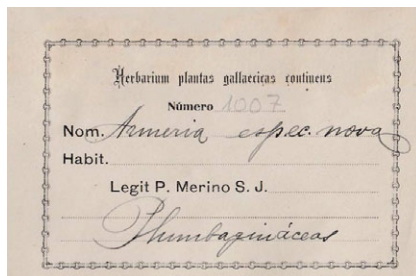 Herbarium plantas gallaecicas continens
Número 1007
Nom. Armeria espec. nova
Habit.
Legit P. Merino S. J.
Plumbagináceas